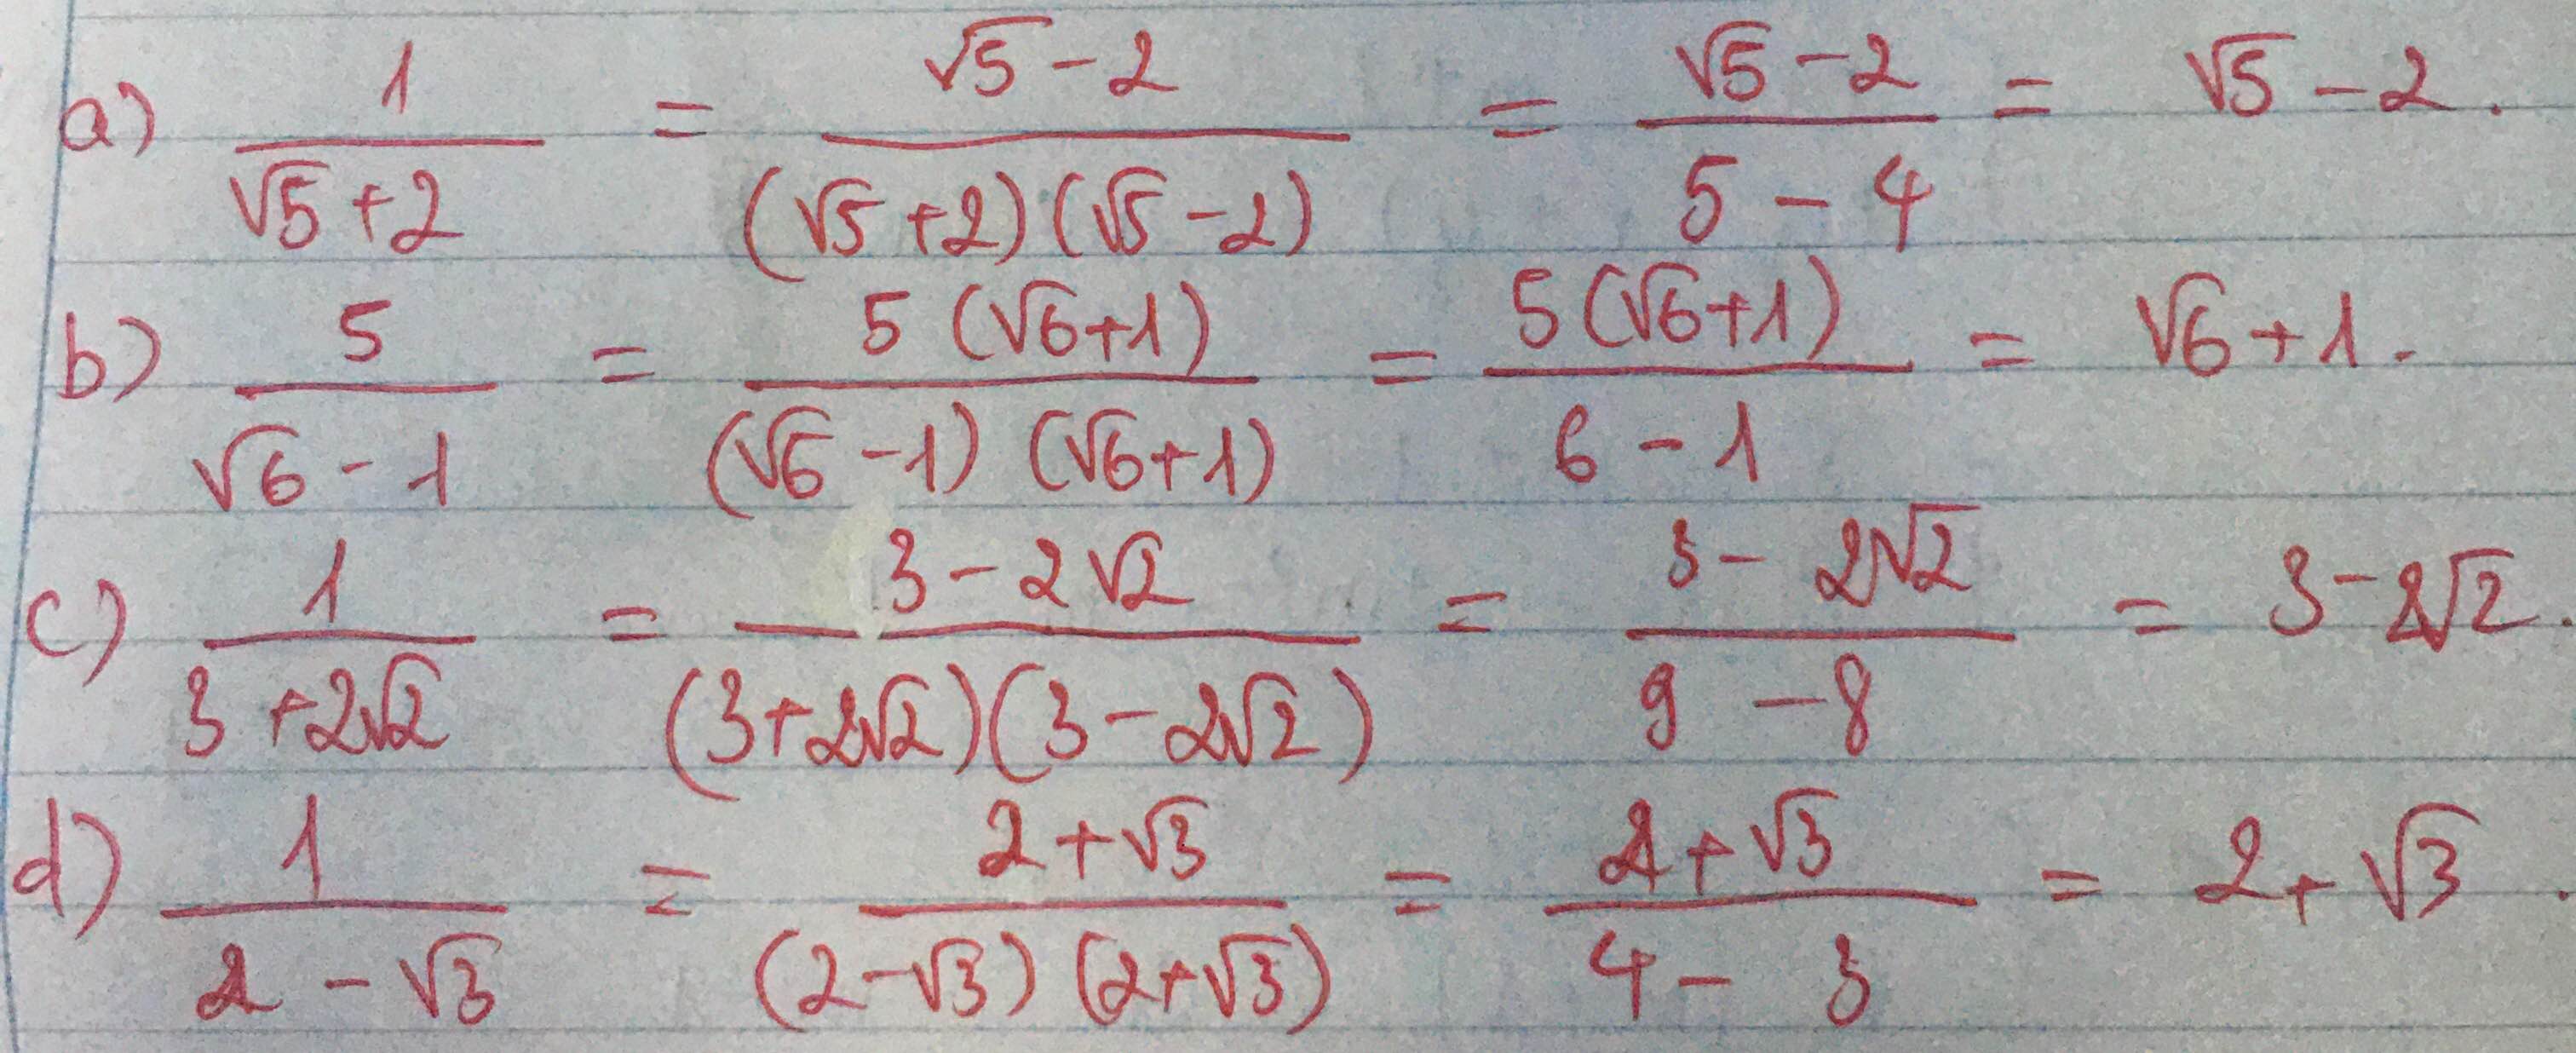 a) 1/(√5+2) = (√5-2)/((√5+2)(√5-2)) = (√5-2)/(5-4) = √5-2.
b) 5/(√6-1) = 5(√6+1)/((√6-1)(√6+1)) = 5(√6+1)/(6-1) = √6+1.
c) 1/(3+2√2) = (3-2√2)/((3+2√2)(3-2√2)) = (3-2√2)/(9-8) = 3-2√2.
d) 1/(2-√3) = (2+√3)/((2-√3)(2+√3)) = (2+√3)/(4-3) = 2+√3.